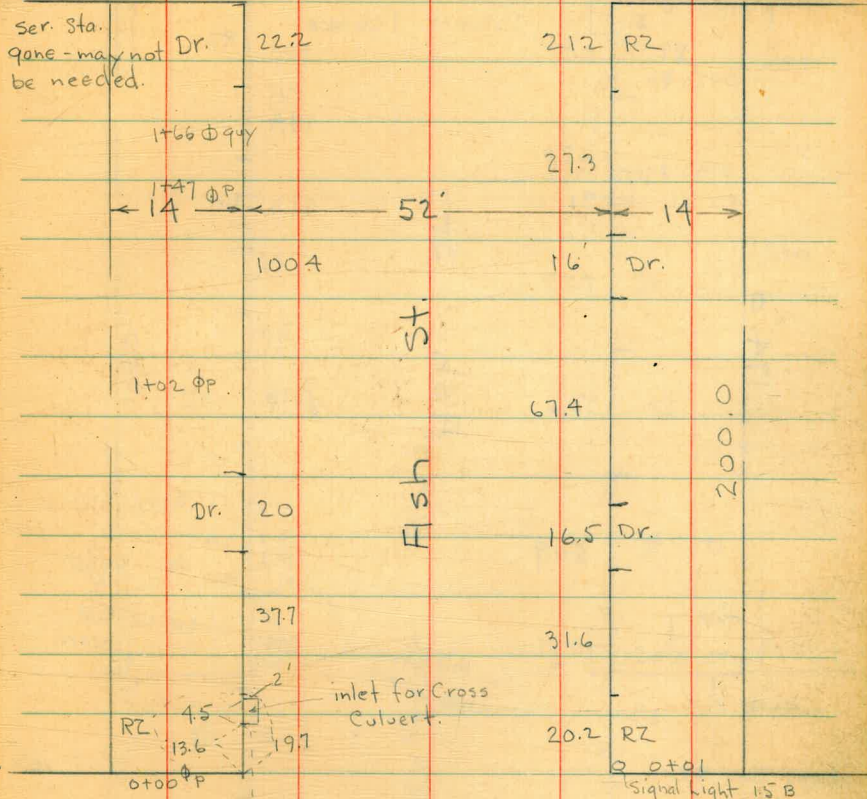 Ser. Sta.
gone - may not
be needed.
Dr. 22.2
21.2 RZ
1+66 ϕ guy
27.3
1+47 ϕP
14
52'
14
100.4
16' Dr.
Ash St.
1+02 ϕP
67.4
200.0
Dr. 20
16.5 Dr.
37.7
31.6
2'
inlet for Cross
Culvert.
4.5
RZ
13.6
19.7
20.2 RZ
0+00 ϕP
0+01
Signal Light 1.5 B